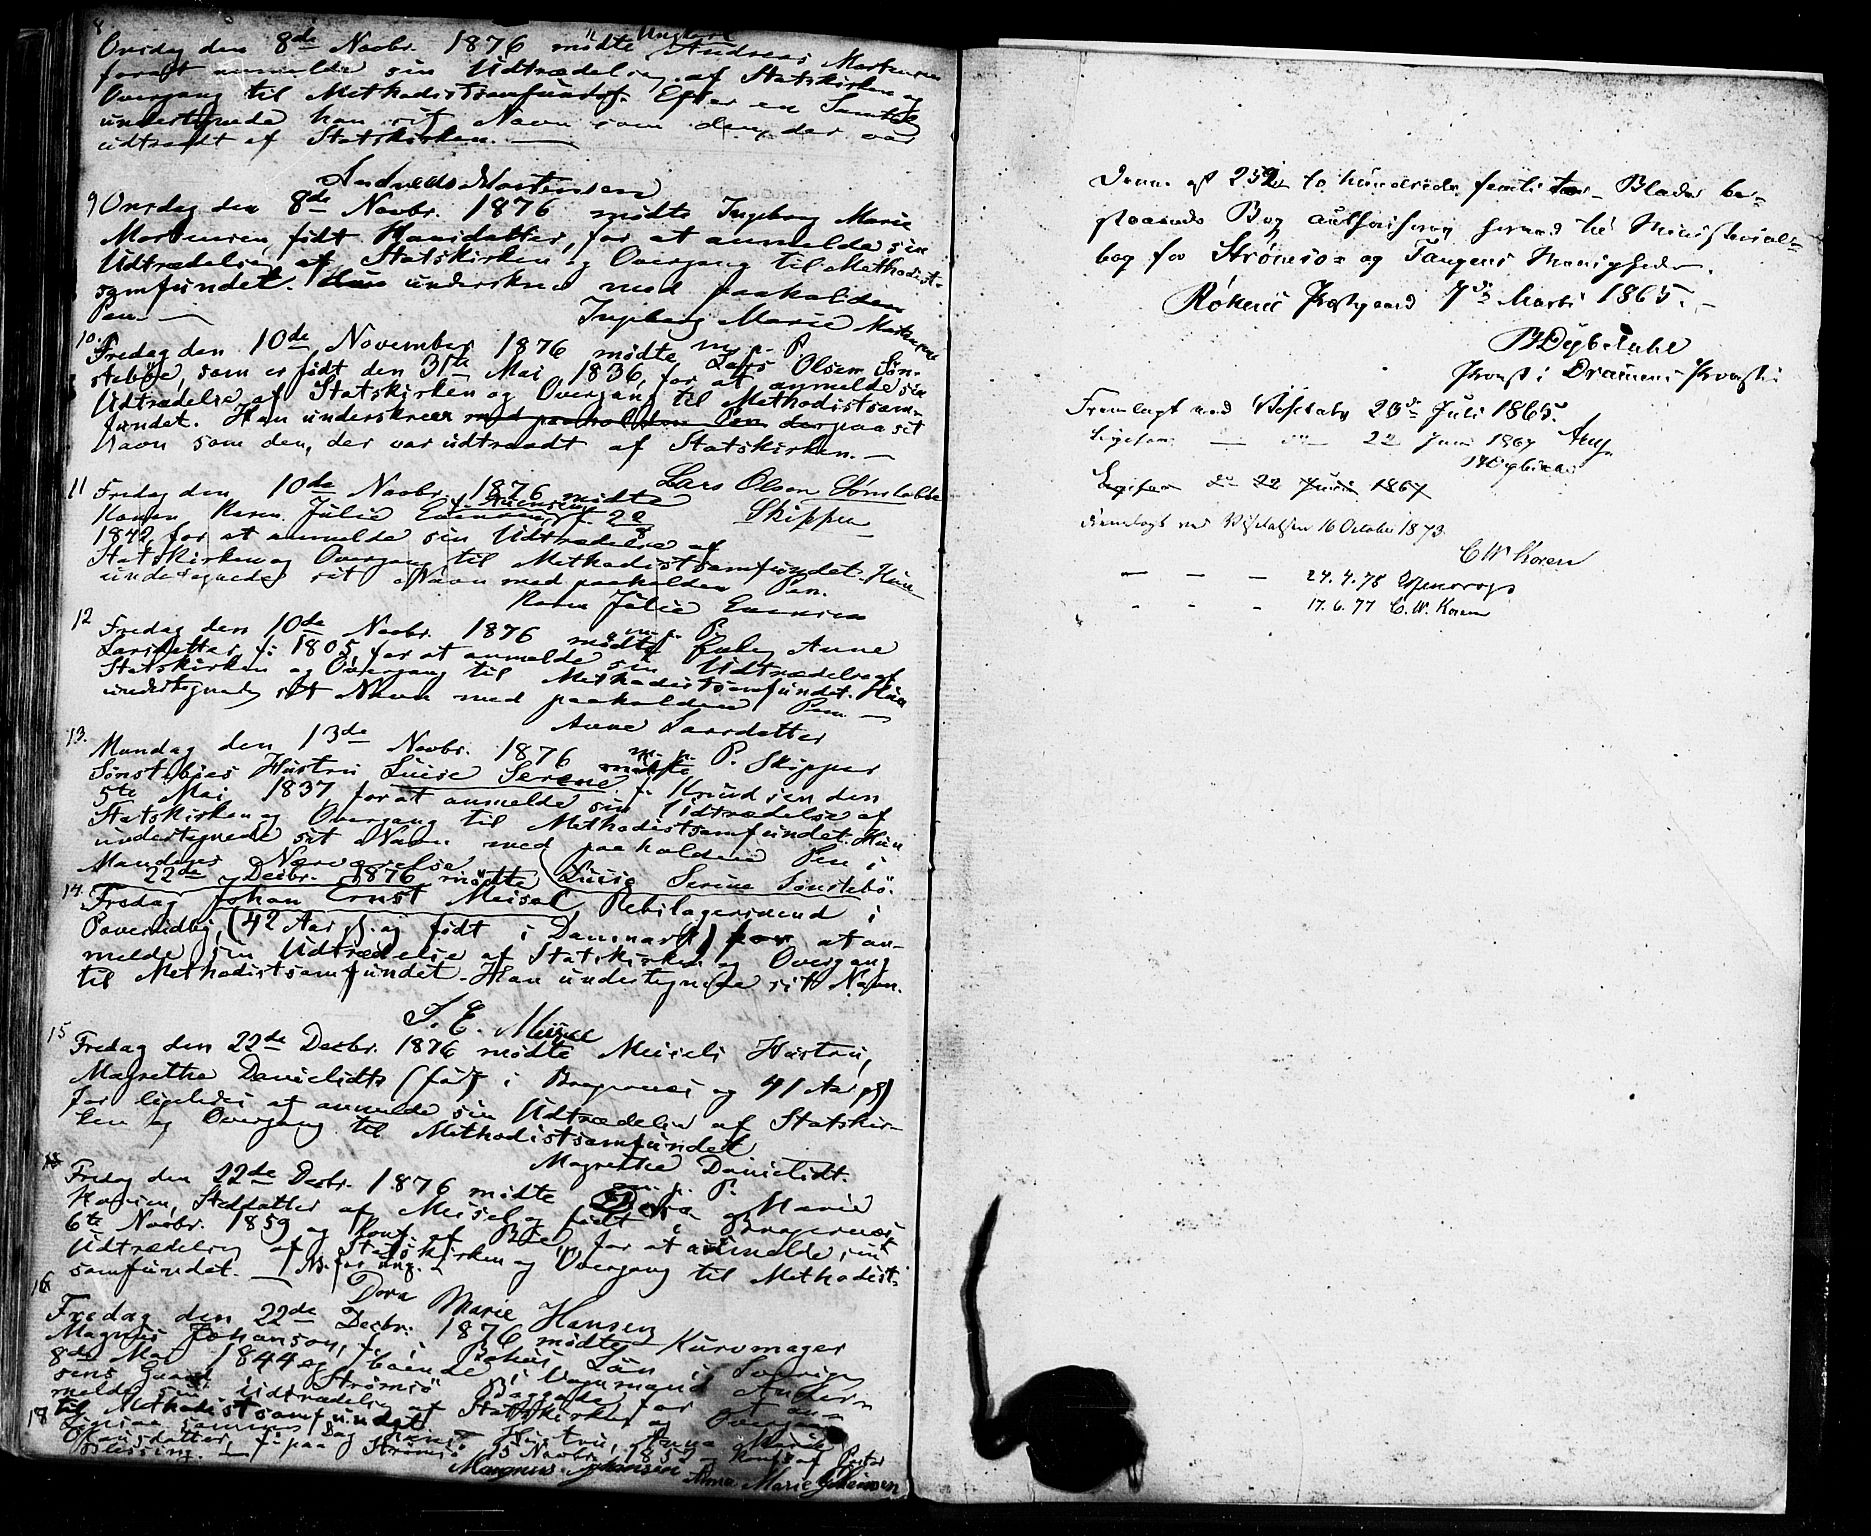 8
Onsdag den 8de Novbr. 1876 mødte Ungkarl Andreas Mortensen
for at anmelde sin Udtrædelse af Statskirken og
Overgang til Methodistsamfundet. Efter en Samtale
undertegnede han sit Navn som den, der var
udtraadt af Statskirken. —
Andreas Mortensen
9 Onsdag den 8de Novbr. 1876 mødte Ingeborg Marie
Mortensen, født Hansdatter, for at anmelde sin
Udtrædelse af Statskirken og Overgang til Methodist-
samfundet. Hun underskrev med paaholden
Pen. —
Ingeborg Marie Mortensen
m. p. P.
10. Fredag den 10de November 1876 mødte Lars Olsen Søn-
stebøe, som er født den 31te Mai 1836, for at anmelde sin
Udtrædelse af Statskirken og Overgang til Methodistsam-
fundet. Han underskrev med paaholden Pen derpaa sit
Navn som den, der var udtraadt af Statskirken. —
Lars Olsen Sønstebøe
Skipper
11 Fredag den 10de Novbr. 1876 mødte
Konen Karen Julie Evensen f.
1842, for at anmelde sin Udtrædelse af
Statskirken og Overgang til Methodistsamfundet. Hun
undertegnede sit Navn med paaholden Pen.
Karen Julie Evensen
m. p. P.
12 Fredag den 10de Novbr. 1876 mødte Enke Anne
Larsdatter, f. 1805, for at anmelde sin Udtrædelse af
Statskirken og Overgang til Methodistsamfundet. Hun
undertegnede sit Navn med paaholden Pen —
Anne Larsdatter
m. p. P.
13. Mandag den 13de Novbr. 1876 mødte Skipper
Sønstebøes Hustru Luise Serene f. Knudsen den
5te Mai 1837 for at anmelde sin Udtrædelse af
Statskirken og Overgang til Methodistsamfundet. Hun
undertegnede sit Navn med paaholden Pen i
Mandens Nærværelse. Luise Serine Sønstebø.
14. Fredag 22de Decbr. 1876 mødte
Johan Ernst Meisel, Rebslagersvend i
(42 Aar gl. og født i Danmark) for at an-
melde sin Udtrædelse af Statskirken og Overgang
til Methodistsamfundet. Han undertegnede sit Navn.
J. E. Meisel
15 Fredag den 22de Decbr. 1876 mødte Meisels Hustru,
Magrethe Danielsdt (født i Bragernes og 41 Aar gl)
for ligeledes at anmelde sin Udtrædelse af Statskir-
ken og Overgang til Methodistsamfundet
Magrethe Danielsdt.
m. p. P.
Fredag den 22de Decbr. 1876 mødte Dora Marie
Hansen, Steddatter af Meisel og født i Bragernes
6te Novbr. 1859 og Konf. af for at anmelde sin
Udtrædelse af Statskirken og Overgang til Methodist-
samfundet. —
Dora Marie Hansen
16 Fredag den 22de Decbr. 1876 mødte Kurvmager
Magnus Johanson, f. i Län i Sverige
8de Mai 1844 og boende i Vognmand Ander-
sens Gaard Strømsø for an-
melde sin Udtrædelse af Statskirken og Overgang
til Methodistsamfundet
18 Ligesaa samme Dag Hustru, Anna Marie
datter, f. paa Strømsø 15 Novbr. og Konf. af Pastor
Magnus Johansen Anna Marie Johansen
Denne af 252 to hundrede femti to Blade be-
staaende Bog authoriseres herved til Ministerial-
bog for Strømsø- og Tangens Menigheder.
Røkens Præstgaard 7de Marts 1865. —
Provst i Dramens Provsti
Fremlagt ved Visitats 23de Juli 1865.
Ligesaa — 22 Juni 1867
Ligesaa d. 22 Juni 1867
Fremlagt ved Visitatsen 16 October 1873.
C W Koren
— — — 24.4.78
- - - 17.6.77 C. W. Koren